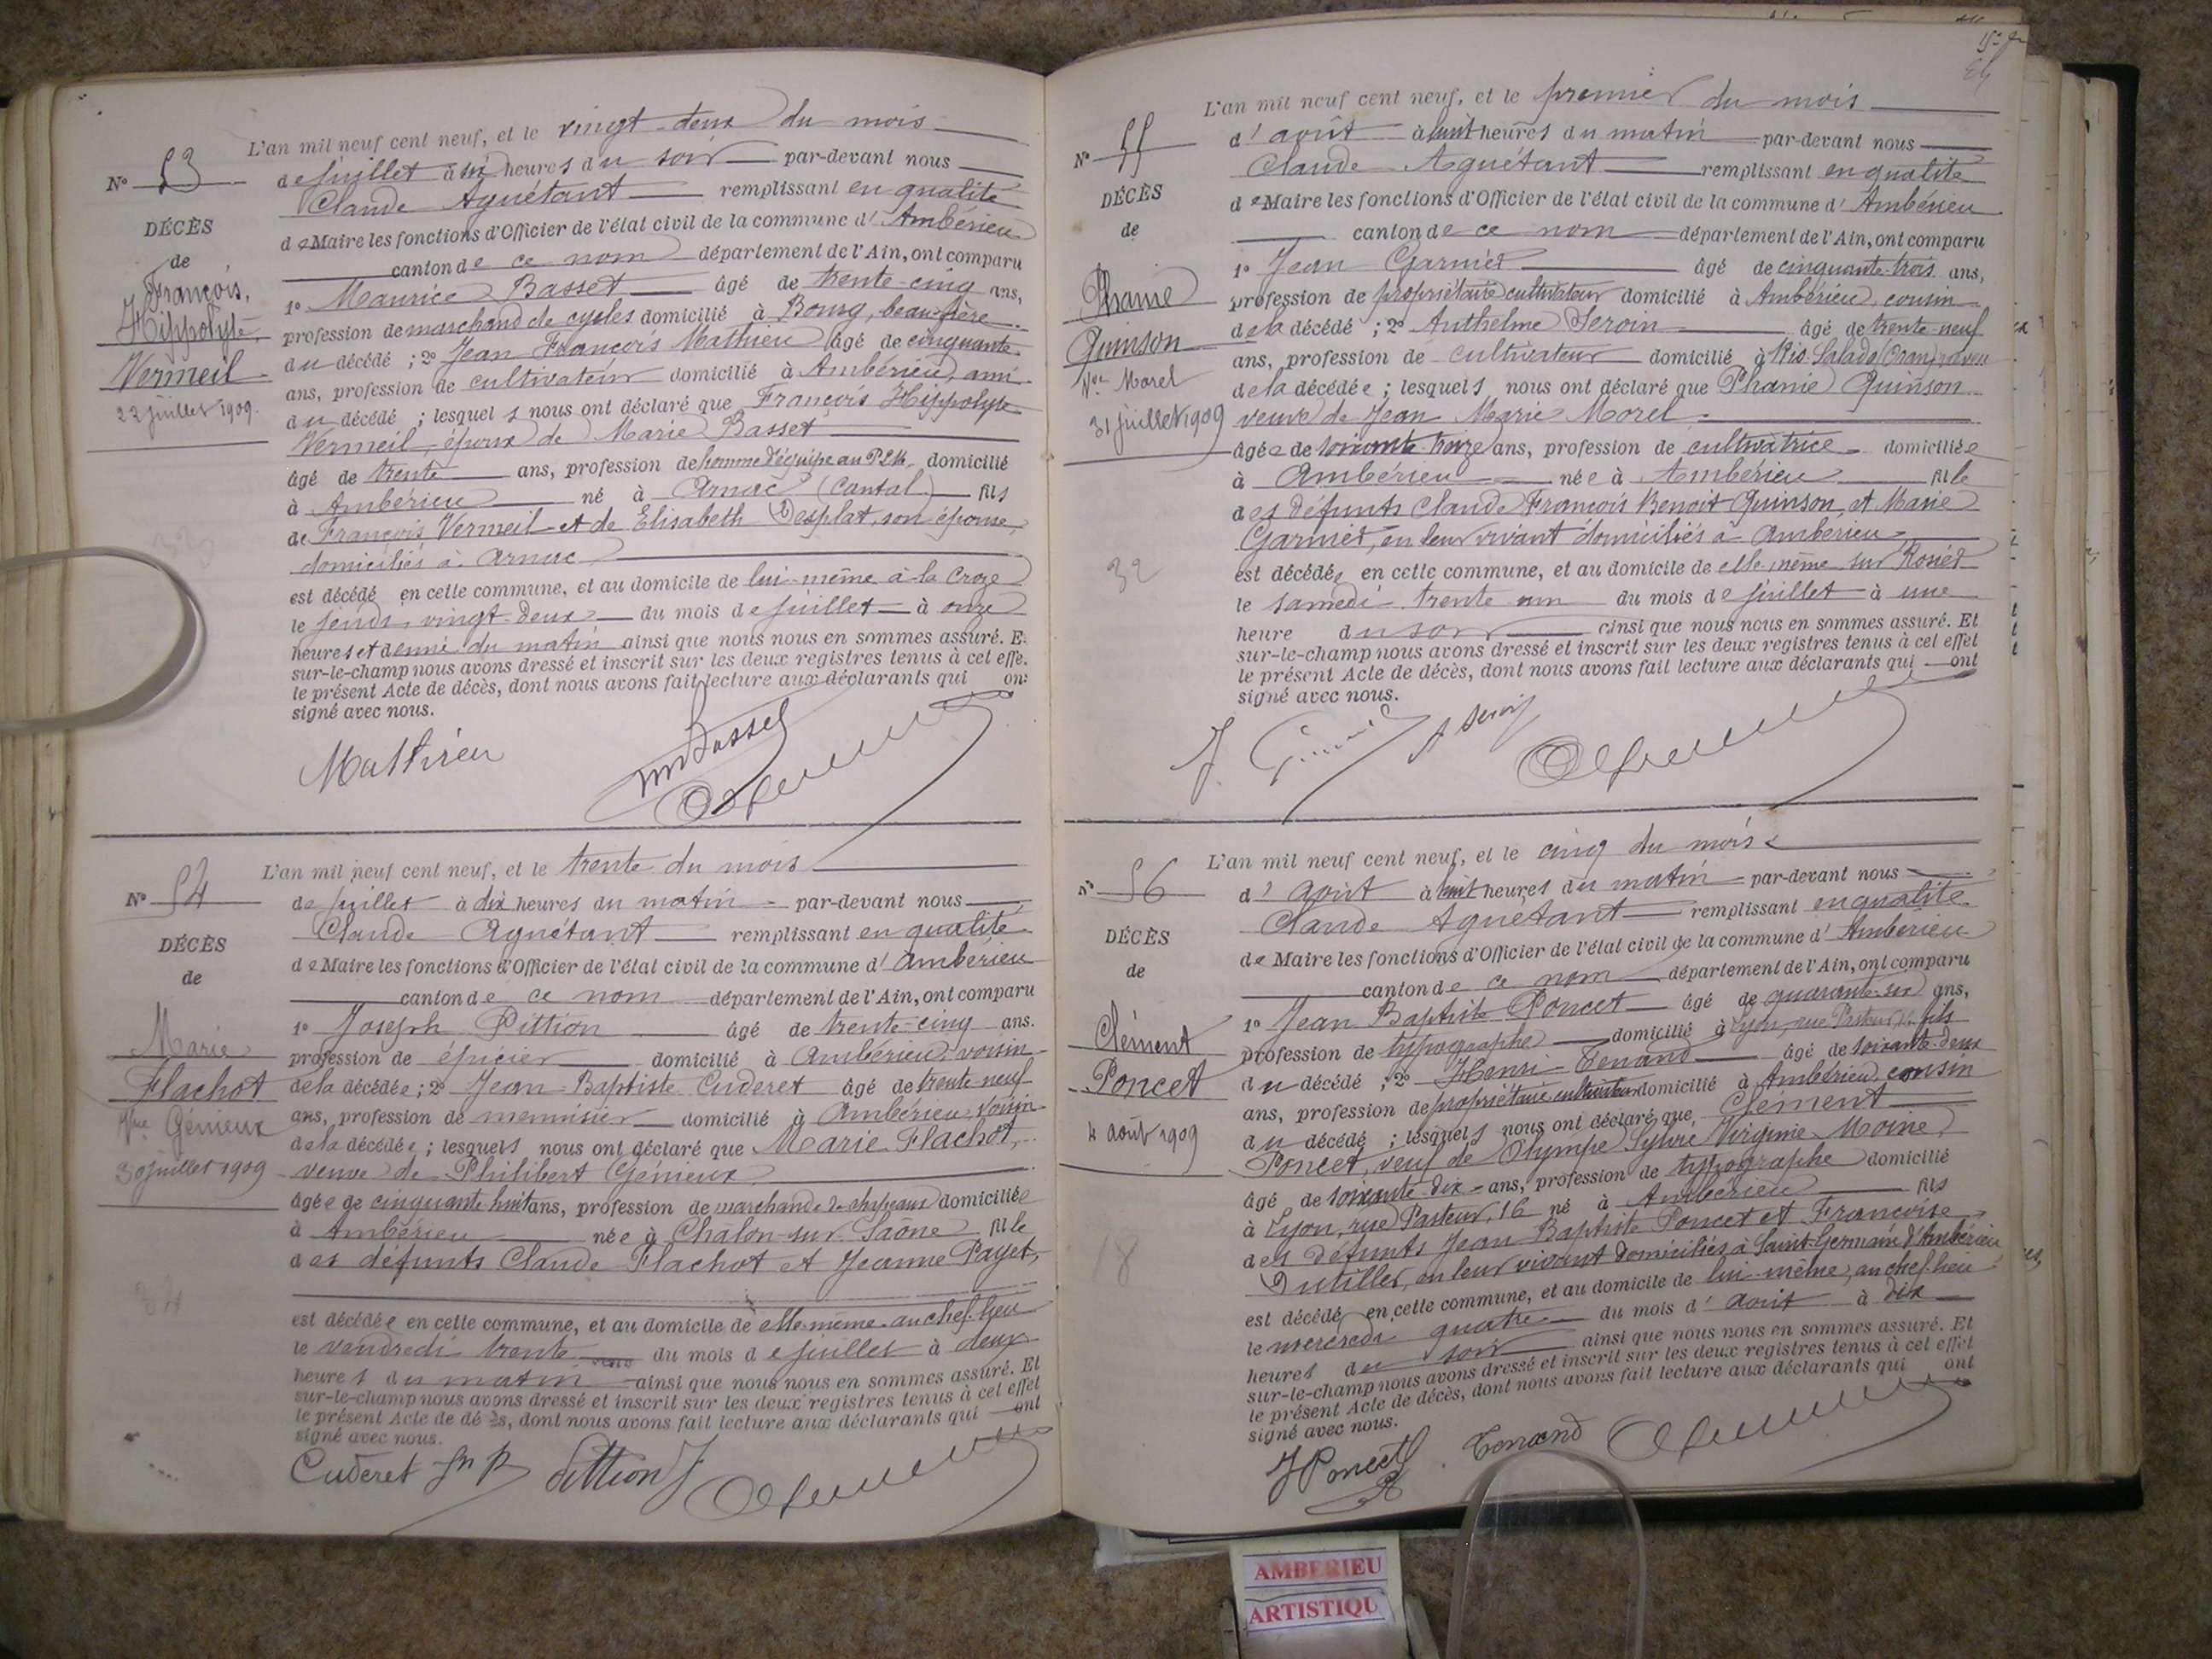 L'an mil neuf cent neuf, et le vingt-deux du mois
N° 53
de juillet à six heures du soir par-devant nous
Claude Aguétant remplissant en qualité
DÉCÈS
de Maire les fonctions d'Officier de l'état civil de la commune d'Ambérieu
de
canton de ce nom département de l'Ain, ont comparu
François,
1° Maurice Basset âgé de trente-cinq ans,
Hippolyte
profession de marchand de cycles domicilié à Bourg, beau-frère
Vermeil
du décédé ; 2° Jean François Mathieu âgé de cinquante
22 juillet 1909.
ans, profession de cultivateur domicilié à Ambérieu, ami
du décédé ; lesquels nous ont déclaré que François Hippolyte
Vermeil, époux de Marie Basset
âgé de trente ans, profession de homme d'équipe au PLM domicilié
à Ambérieu né à Arnac (Cantal) fils
de François Vermeil et de Elisabeth Desplat, son épouse,
domiciliés à Arnac
est décédé en cette commune, et au domicile de lui-même à la Croze
le jeudi, vingt-deux du mois de juillet à onze
heures et demie du matin ainsi que nous nous en sommes assuré. E
sur-le-champ nous avons dressé et inscrit sur les deux registres tenus à cet effe
le présent Acte de décès, dont nous avons fait lecture aux déclarants qui on
signé avec nous.
Mathieu
M Basset
L'an mil neuf cent neuf, et le trente du mois
N° 54
de juillet à dix heures du matin par-devant nous
Claude Aguétant remplissant en qualité
DÉCÈS
de Maire les fonctions d'Officier de l'état civil de la commune d'Ambérieu
de
canton de ce nom département de l'Ain, ont comparu
Marie
1° Joseph Pittion âgé de trente-cinq ans.
profession de épicier domicilié à Ambérieu, voisin
Flachot
de la décédée ; 2° Jean-Baptiste Cuderet âgé de trente-neuf
Vve Génieux
ans, profession de menuisier domicilié à Ambérieu, voisin
de la décédée ; lesquels nous ont déclaré que Marie Flachot,
30 juillet 1909
veuve de Philibert Génieux
âgée de cinquante-huit ans, profession de marchande de chapeaux domiciliée
à Ambérieu née à Châlon-sur-Saône fille
des défunts Claude Flachot et Jeanne Payet,
34
est décédée en cette commune, et au domicile de elle-même au chef-lieu
le vendredi trente du mois de juillet à deux
heures du matin ainsi que nous nous en sommes assuré. Et
sur-le-champ nous avons dressé et inscrit sur les deux registres tenus à cet effet
le présent Acte de décès, dont nous avons fait lecture aux déclarants qui ont
signé avec nous.
Cuderet Jn B Pittion J
L'an mil neuf cent neuf, et le premier du mois
N° 55
d'août à huit heures du matin par-devant nous
Claude Aguétant remplissant en qualité
DÉCÈS
de Maire les fonctions d'Officier de l'état civil de la commune d'Ambérieu
de
canton de ce nom département de l'Ain, ont comparu
1° Jean Garnier âgé de cinquante-trois ans,
Phanie
profession de propriétaire cultivateur domicilié à Ambérieu, cousin
de la décédé ; 2° Anthelme Seroin âgé de trente-neuf
Quinson
ans, profession de cultivateur domicilié à Rio-Salado (Oran), neveu
Vve Morel
de la décédée ; lesquels nous ont déclaré que Phanie Quinson
31 juillet 1909
veuve de Jean Marie Morel
âgée de soixante-treize ans, profession de cultivatrice domiciliée
à Ambérieu née à Ambérieu fille
des défunts Claude François Benoit Quinson, et Marie
Garnier, en leur vivant domiciliés à Ambérieu
32
est décédée en cette commune, et au domicile de elle-même sur Rosier
le samedi trente un du mois de juillet à une
heure du soir ainsi que nous nous en sommes assuré. Et
sur-le-champ nous avons dressé et inscrit sur les deux registres tenus à cet effet
le présent Acte de décès, dont nous avons fait lecture aux déclarants qui ont
signé avec nous.
A Seroin
L'an mil neuf cent neuf, et le cinq du mois
N° 56
d'août à huit heures du matin par-devant nous
Claude Aguétant remplissant en qualité
DÉCÈS
de Maire les fonctions d'Officier de l'état civil de la commune d'Ambérieu
de
canton de ce nom département de l'Ain, ont comparu
1° Jean Baptiste Poncet âgé de quarante-six ans,
Clément
profession de typographe domicilié à Lyon, rue Pasteur, 16 fils
Poncet
du décédé ; 2° Henri Tenand âgé de soixante-deux
ans, profession de propriétaire cultivateur domicilié à Ambérieu, cousin
4 août 1909
du décédé ; lesquels nous ont déclaré que Clément
Poncet, veuf de Olympe Sylvie Virginie Moine
âgé de soixante-dix ans, profession de typographe domicilié
à Lyon, rue Pasteur, 16 né à Ambérieu fils
des défunts Jean Baptiste Poncet et Françoise
18
Dutiller, en leur vivant domiciliés à Saint-Germain d'Ambérieu
est décédé en cette commune, et au domicile de lui-même, au chef-lieu
le mercredi quatre du mois d'août à dix
heures du soir ainsi que nous nous en sommes assuré. Et
sur-le-champ nous avons dressé et inscrit sur les deux registres tenus à cet effet
le présent Acte de décès, dont nous avons fait lecture aux déclarants qui ont
signé avec nous.
J Poncet Tenand
AMBERIEU
ARTISTIQU